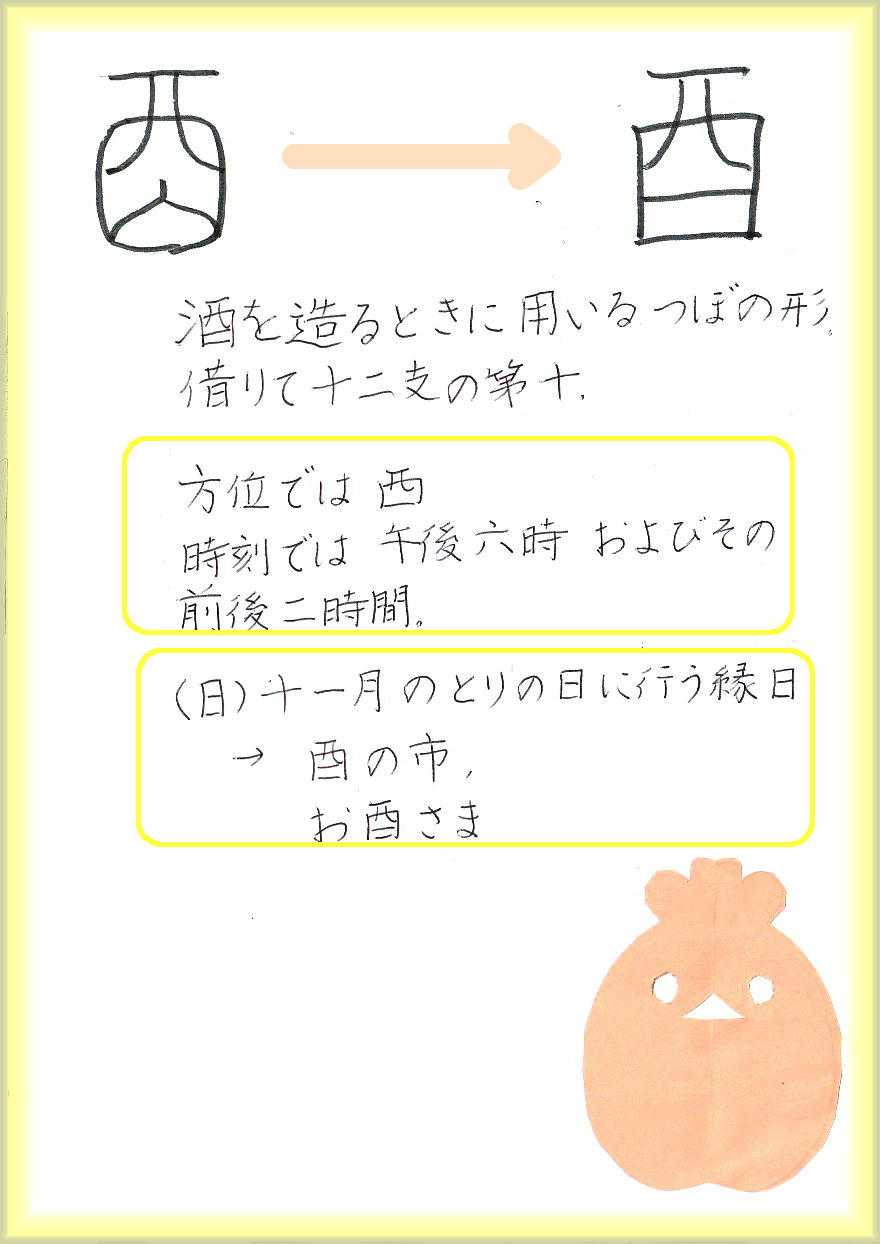 酉 酉
酒を造るときに用いるつぼの形。
借りて十二支の第十.
方位では 西
時刻では 午後六時 およびその
前後二時間。
(日)十一月のとりの日に行う縁日
→ 酉の市,
お酉さま